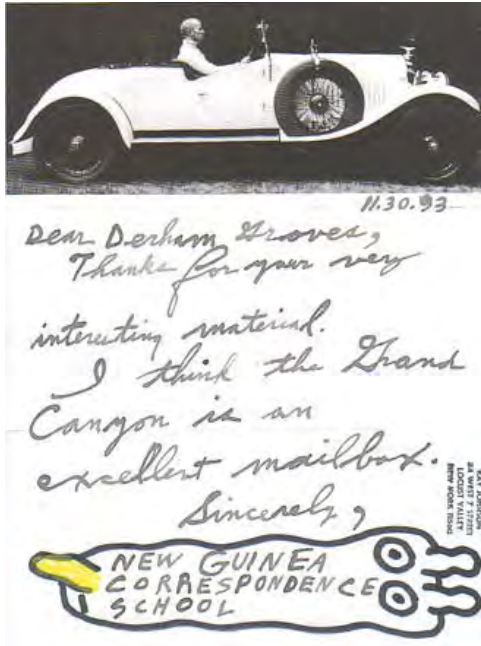 11.30.93
Dear Derham Groves,
Thanks for your very
interesting material.
I think the Grand
Canyon is an
excellent mailbox.
Sincerely,
RAY JOHNSON
44 WEST 7 STREET
LOCUST VALLEY
NEW YORK 11560
NEW GUINEA
CORRESPONDENCE
SCHOOL